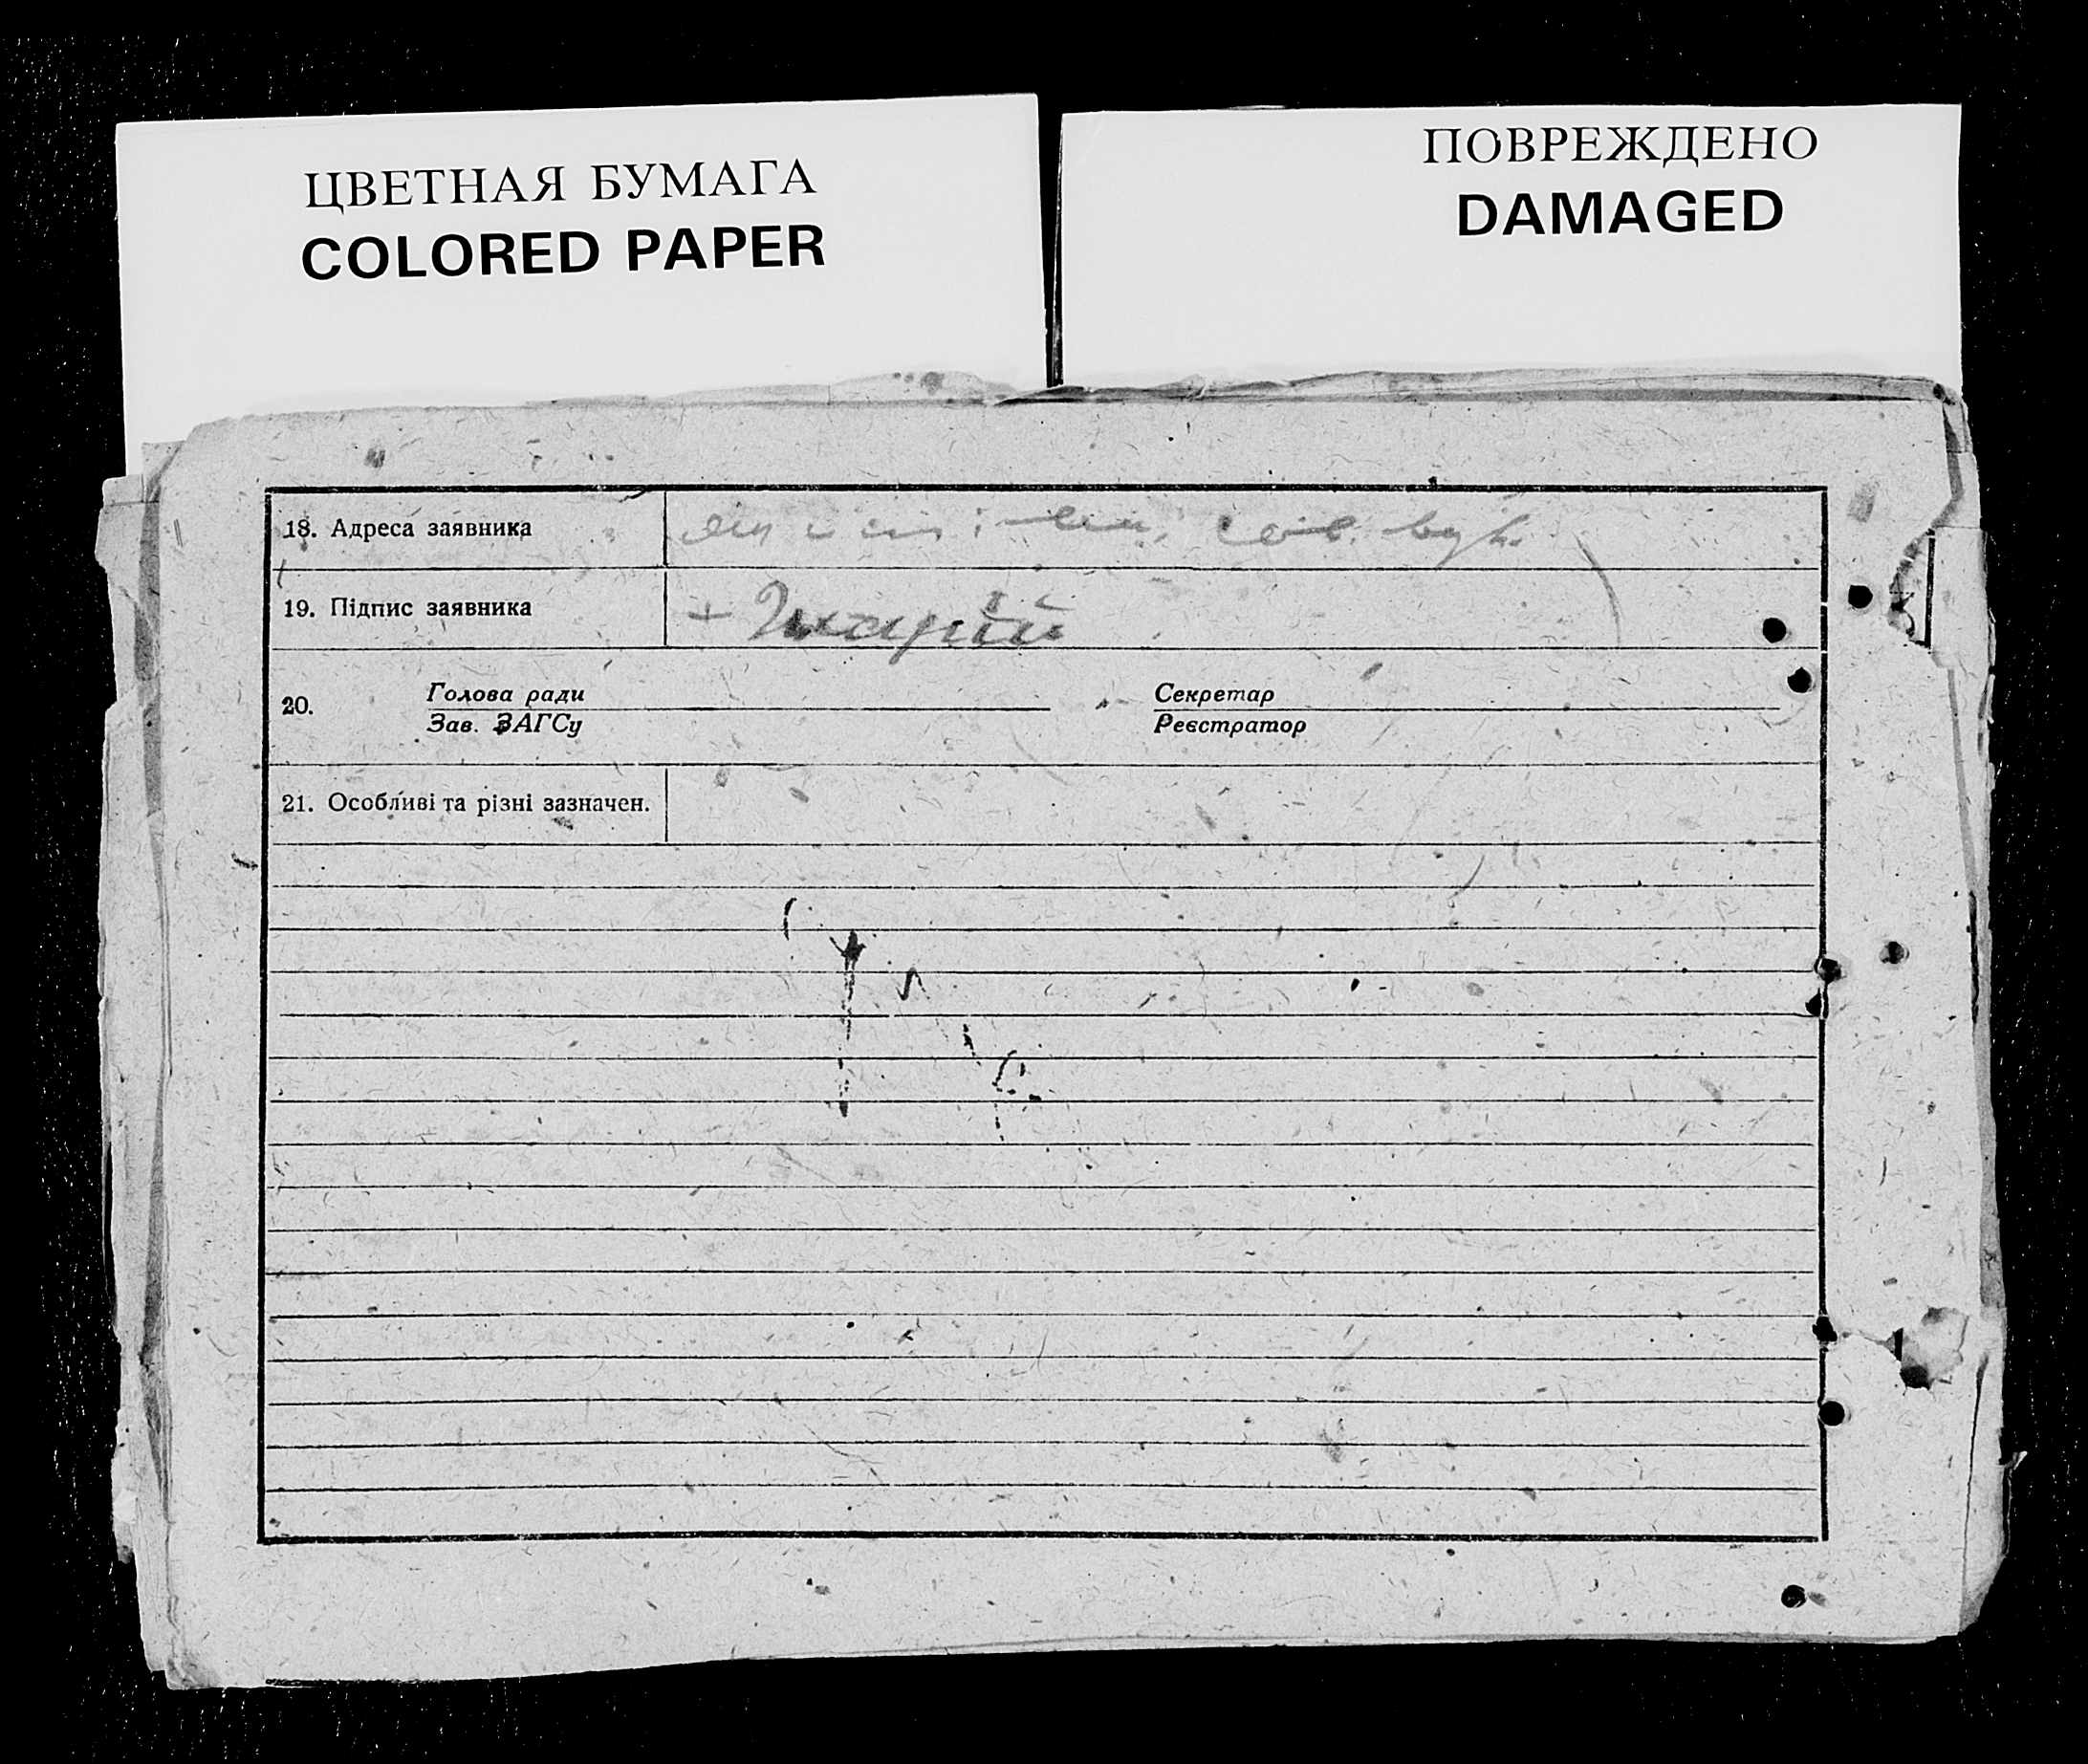 ЦВЕТНАЯ БУМАГА
COLORED PAPER
ПОВРЕЖДЕНО
DAMAGED
18. Адреса заявника
19. Підпис заявника
20. Голова ради Секретар
Зав. ЗАГСу Реєстратор
21. Особливі та різні зазначен.